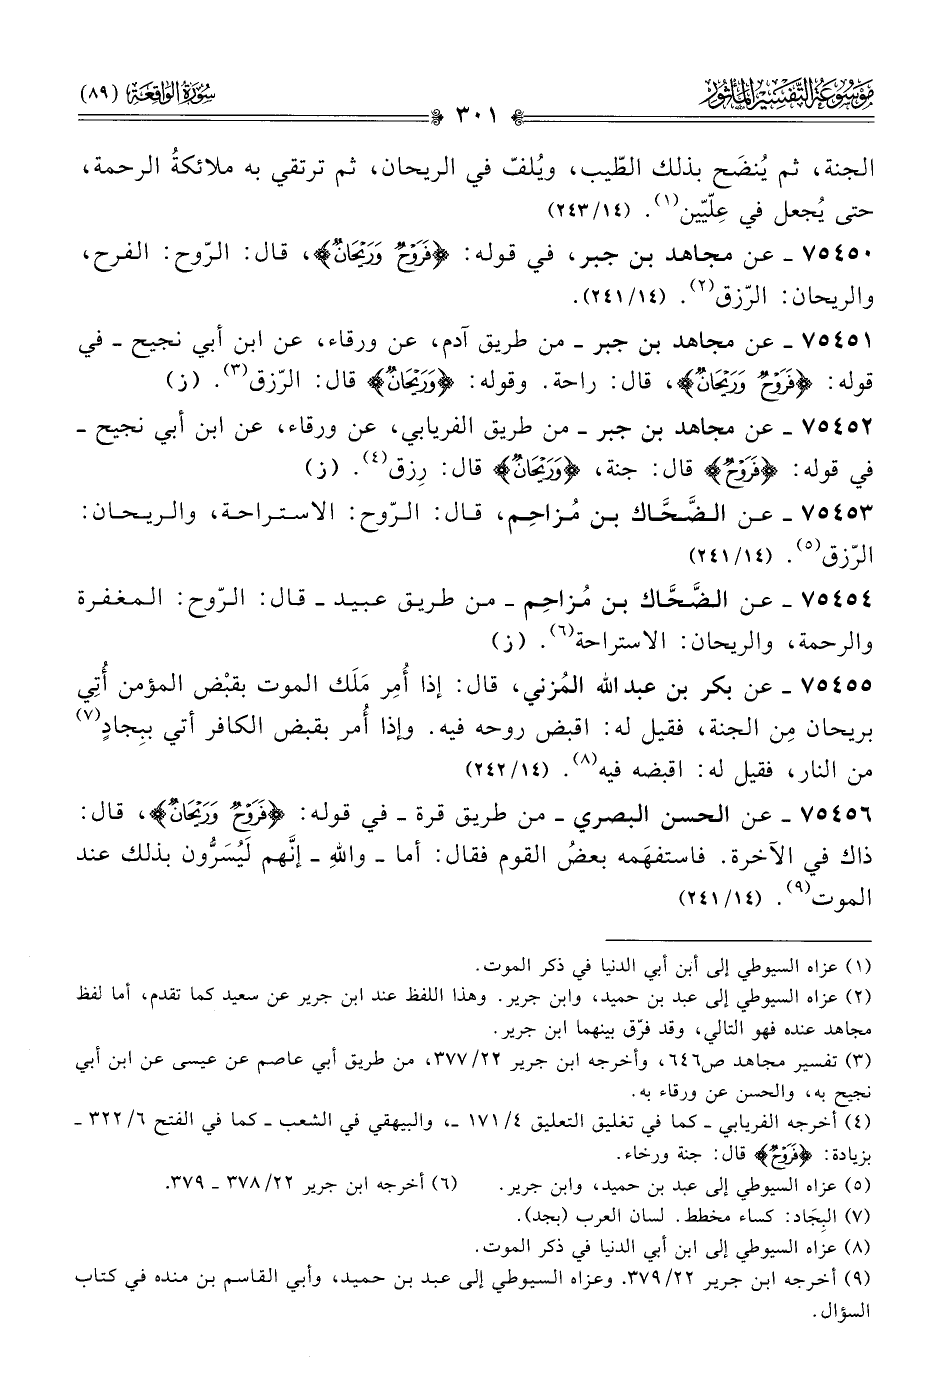 مَوْسُوعَةُ التَّفْسِيرِ المَأْثُورِ
سُورَةُ الوَاقِعَةِ (٨٩)
٣٠١
الجنة، ثم يُنضَح بذلك الطّيب، ويُلفّ في الريحان، ثم ترتقي به ملائكةُ الرحمة،
حتى يُجعل في عِلّيّين(١). (١٤/ ٢٤٣)
٧٥٤٥٠ ـ عن مجاهد بن جبر، في قوله: ﴿فَرَوْحٌ وَرَيْحَانٌ﴾، قال: الرّوح: الفرح،
والريحان: الرّزق(٢). (١٤/ ٢٤١).
٧٥٤٥١ ـ عن مجاهد بن جبر ـ من طريق آدم، عن ورقاء، عن ابن أبي نجيح ـ في
قوله: ﴿فَرَوْحٌ وَرَيْحَانٌ﴾، قال: راحة. وقوله: ﴿وَرَيْحَانٌ﴾ قال: الرّزق(٣). (ز)
٧٥٤٥٢ ـ عن مجاهد بن جبر ـ من طريق الفريابي، عن ورقاء، عن ابن أبي نجيح ـ
في قوله: ﴿فَرَوْحٌ﴾ قال: جنة، ﴿وَرَيْحَانٌ﴾ قال: رِزق(٤). (ز)
٧٥٤٥٣ ـ عن الضَّحَّاك بن مُزاحِم، قال: الرّوح: الاستراحة، والريحان:
الرّزق(٥). (١٤/ ٢٤١)
٧٥٤٥٤ ـ عن الضَّحَّاك بن مُزاحِم ـ من طريق عبيد ـ قال: الرّوح: المغفرة
والرحمة، والريحان: الاستراحة(٦). (ز)
٧٥٤٥٥ ـ عن بكر بن عبدالله المُزني، قال: إذا أُمِر مَلَك الموت بقبْض المؤمن أُتِي
بريحان مِن الجنة، فقيل له: اقبض روحه فيه. وإذا أُمر بقبض الكافر أتي ببِجادٍ(٧)
من النار، فقيل له: اقبضه فيه(٨). (١٤/ ٢٤٢)
٧٥٤٥٦ ـ عن الحسن البصري ـ من طريق قرة ـ في قوله: ﴿فَرَوْحٌ وَرَيْحَانٌ﴾، قال:
ذاك في الآخرة. فاستفهَمه بعضُ القوم فقال: أما ـ واللهِ ـ إنَّهم لَيُسَرُّون بذلك عند
الموت(٩). (١٤/ ٢٤١)
(١) عزاه السيوطي إلى أبن أبي الدنيا في ذكر الموت.
(٢) عزاه السيوطي إلى عبد بن حميد، وابن جرير. وهذا اللفظ عند ابن جرير عن سعيد كما تقدم، أما لفظ
مجاهد عنده فهو التالي، وقد فرّق بينهما ابن جرير.
(٣) تفسير مجاهد ص٦٤٦، وأخرجه ابن جرير ٢٢/ ٣٧٧، من طريق أبي عاصم عن عيسى عن ابن أبي
نجيح به، والحسن عن ورقاء به.
(٤) أخرجه الفريابي ـ كما في تغليق التعليق ٤/ ١٧١ ـ، والبيهقي في الشعب ـ كما في الفتح ٦/ ٣٢٢ ـ
بزيادة: ﴿فَرَوْحٌ﴾ قال: جنة ورخاء.
(٥) عزاه السيوطي إلى عبد بن حميد، وابن جرير. (٦) أخرجه ابن جرير ٢٢/ ٣٧٨ ـ ٣٧٩.
(٧) البِجَاد: كساء مخطط. لسان العرب (بجد).
(٨) عزاه السيوطي إلى ابن أبي الدنيا في ذكر الموت.
(٩) أخرجه ابن جرير ٢٢/ ٣٧٩. وعزاه السيوطي إلى عبد بن حميد، وأبي القاسم بن منده في كتاب
السؤال.